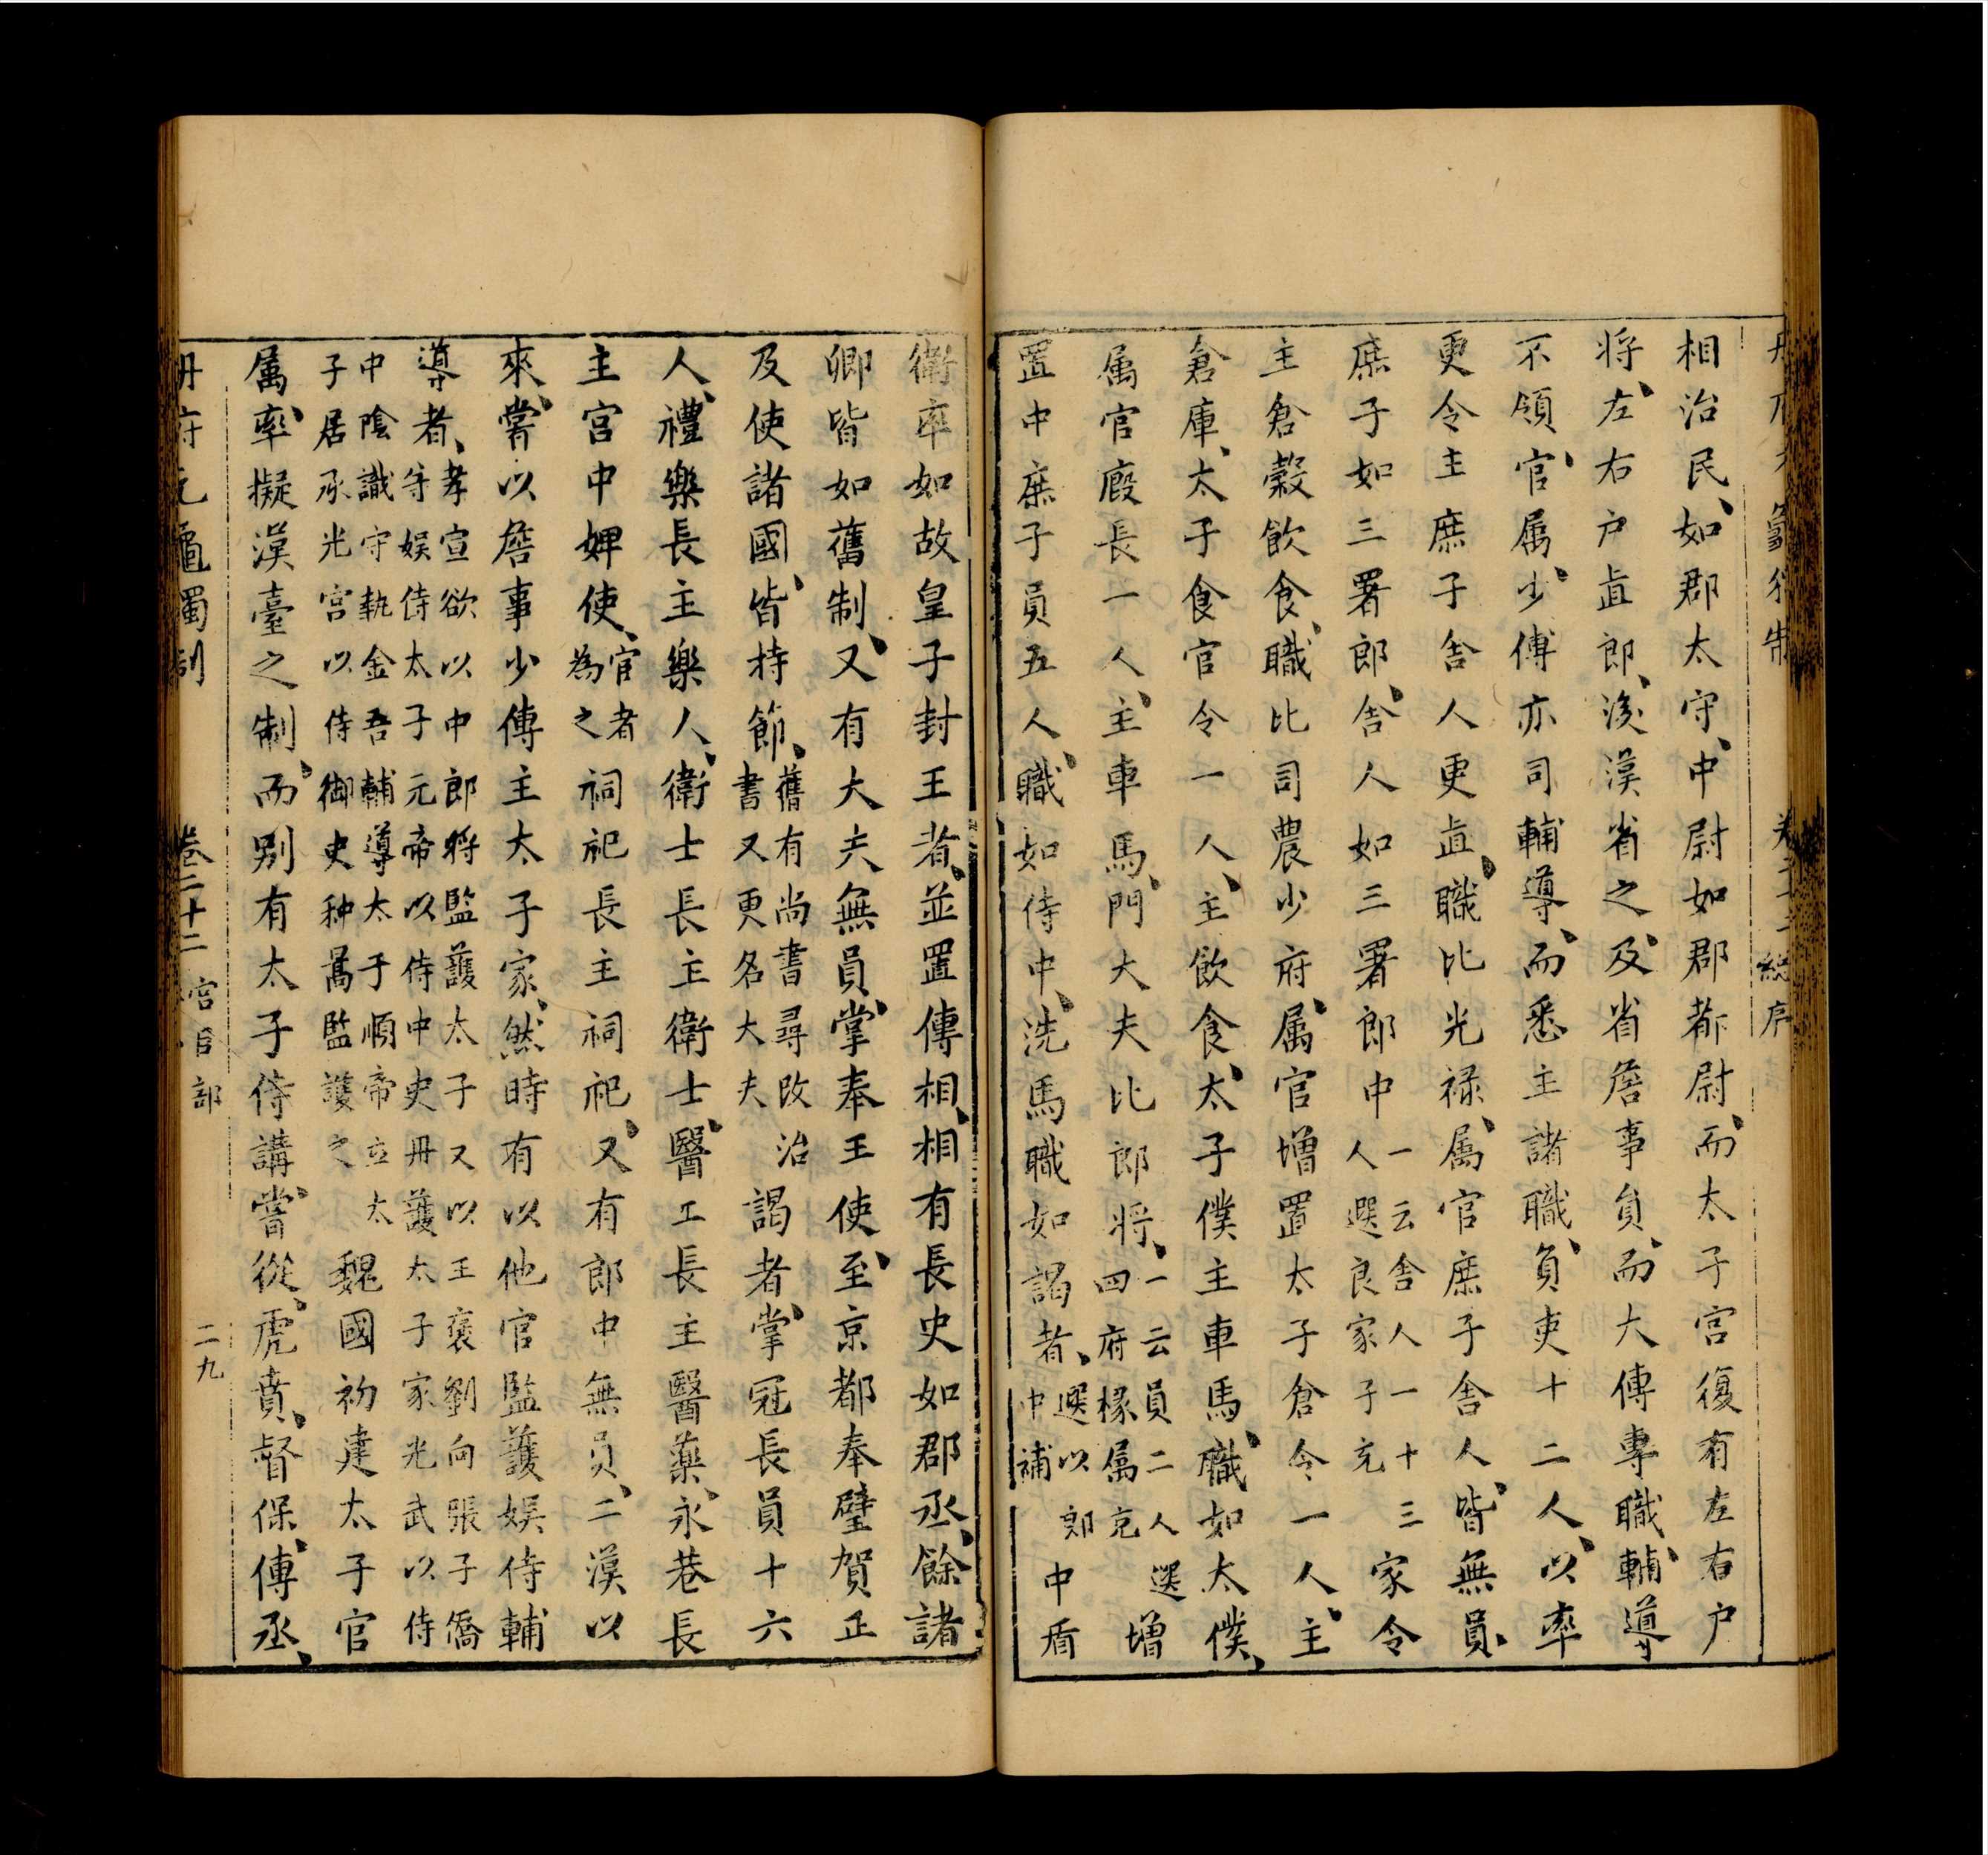 相治民、如郡太守、中尉如郡都尉、而太子宮復有左右户
将、左右户直郎、後漢省之、及省詹事負、而大傅專職輔導
不領官属、少傅亦司輔導、而悉主諸職、負吏十二人、以率
更令主庶子舍人更直、職比光禄、属官庶子舍人、皆無員、
庶子如三署郎、舍人如三署郎中一云舍人一十三
人選良家子充家令
主倉穀飲食、職比司農少府、属官增置太子倉令一人、主
倉庫、太子食官令一人、主飲食、太子僕主車馬、職如太僕、
属官廄長一人、主車馬、門大夫比郎将、一云員二人選
四府掾属充增
置中庶子員五人、職如侍中、洗馬職如謁者、選以郎
中補中盾
衛率如故皇子封王者、並置傅相、相有長史如郡丞、餘諸
卿皆如舊制、又有大夫無員、掌奉王使至京都奉璧賀正
及使諸國、皆持節、舊有尚書尋改治
書又更名大夫謁者掌冠長員十六
人、禮樂長主樂人、衛士長主衛士、醫工長主醫藥、永巷長
主宮中婢使、官者
為之祠祀長主祠祀、又有郎中無員、二漢以
來、嘗以詹事少傅主太子家、然時有以他官監護娱侍輔
導者、孝宣欲以中郎将監護太子又以王褒劉向張子僑
等娱侍太子元帝以侍中史丹護太子家光武以侍
中陰識守執金吾輔導太子順帝立太
子居承光宮以侍御史种暠監護之魏國初建太子官
属、率擬漢臺之制、而别有太子侍講、嘗從、虎賁、督保、傅丞、
卷二十二 宮臣部 二九